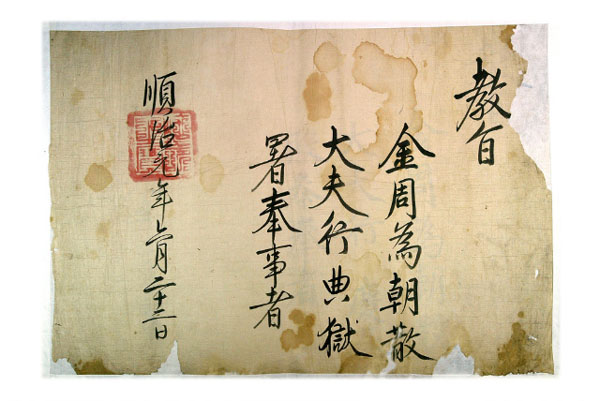 教旨
金周為朝散
大夫行典獄
署奉事者
順治元年月二十二日